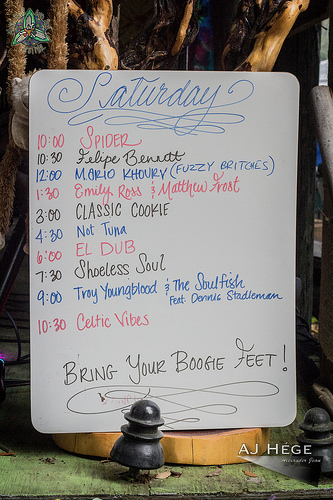 Saturday
10:00 SPIDER
10:30 Felipe Benett
12:00 MARIO KHOURY (FUZZY BRITCHES)
1:30 Emily Ross & Matthew Frost
3:00 CLASSIC COOKIE
4:30 Not Tuna
6:00 EL DUB
7:30 Shoeless Soul
9:00 Troy Youngblood & The Soulfish
Feat. Dennis Stadleman
10:30 Celtic Vibes
BRING YOUR BOOGIE FEET!
AJ HÉGE
Alexander John